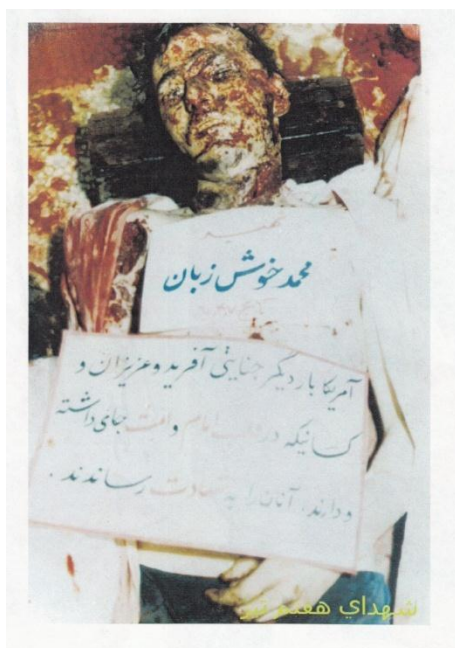 شهید
محمد خوش زبان
آمریکا بار دیگر جنایتی آفرید و عزیزان و
کسانیکه در قلب امام و امت جای داشته
و دارند، آنان را به شهادت رساندند.
شهدای هفتم تیر